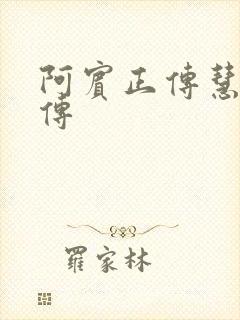 阿賓正傳慧
傳
羅家林